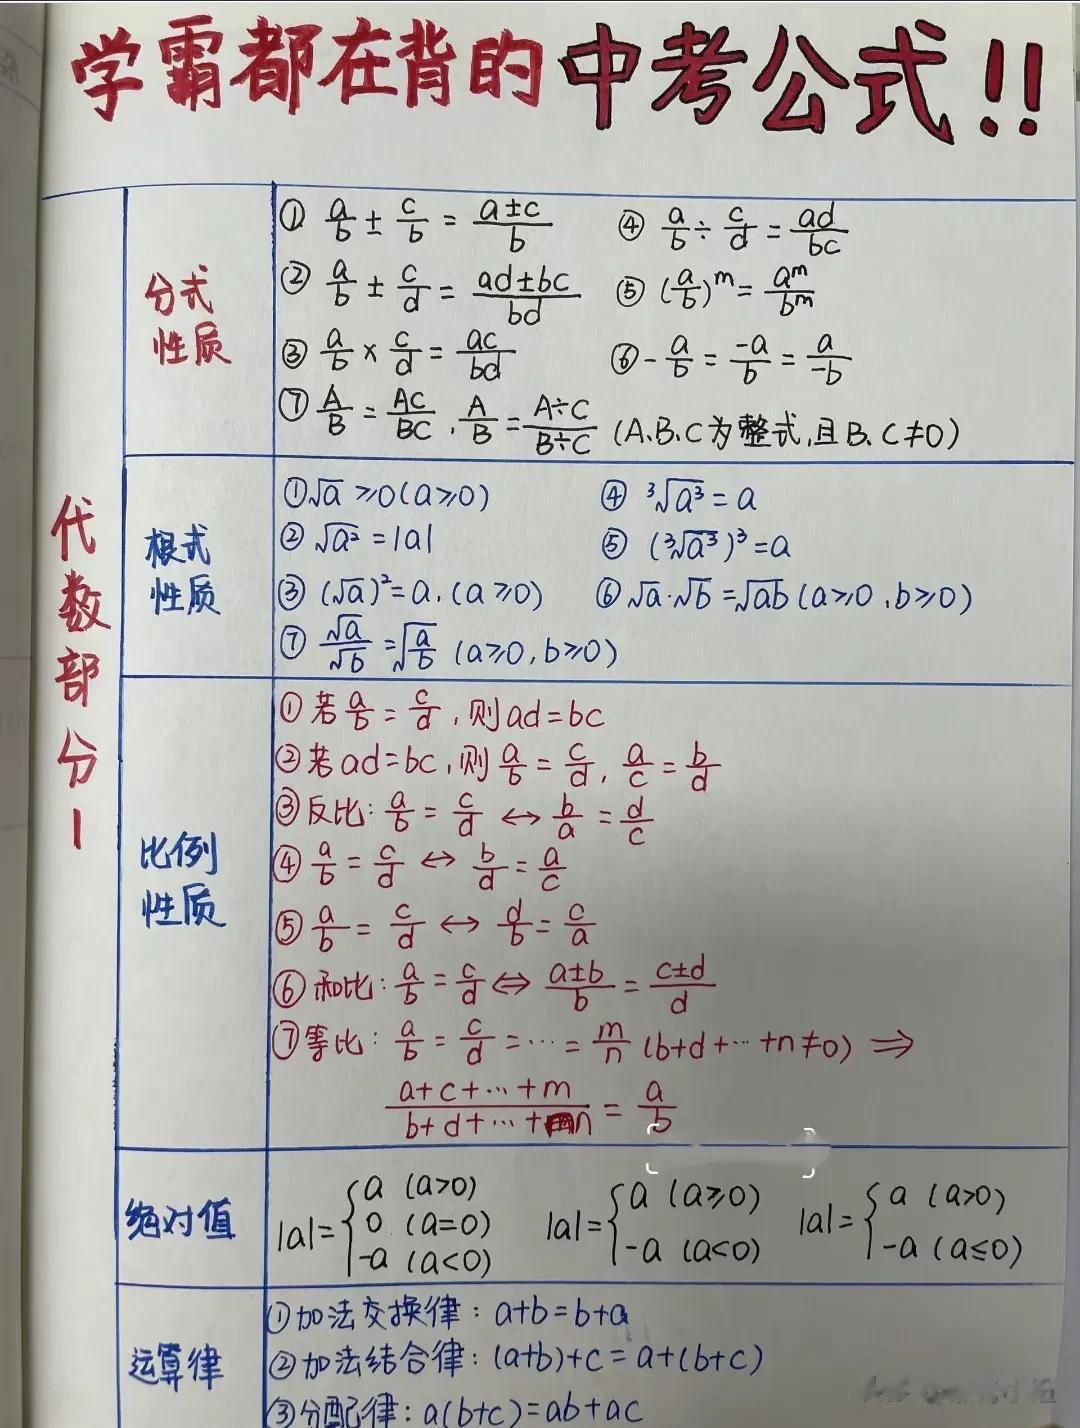 学霸都在背的中考公式!!
代数部分1
分式性质
① a/b ± c/b = (a±c)/b ④ a/b ÷ c/d = ad/bc
② a/b ± c/d = (ad±bc)/bd ⑤ (a/b)^m = a^m/b^m
③ a/b × c/d = ac/bd ⑥ -a/b = -a/b = a/-b
⑦ A/B = AC/BC, A/B = A÷C/B÷C (A、B、C为整式,且B、C≠0)
根式性质
① √a ≥0(a≥0) ④ ³√a³ = a
② √a² = |a| ⑤ (³√a³)³=a
③ (√a)²=a, (a≥0) ⑥ √a·√b=√ab (a≥0,b≥0)
⑦ √a/√b = √(a/b) (a≥0,b≥0)
比例性质
① 若 a/b = c/d, 则 ad=bc
② 若 ad=bc, 则 a/b = c/d, a/c = b/d
③ 反比: a/b = c/d ↔ b/a = d/c
④ a/b = c/d ↔ b/d = a/c
⑤ a/b = c/d ↔ d/b = c/a
⑥ 和比: a/b = c/d ⇔ (a±b)/b = (c±d)/d
⑦ 等比: a/b = c/d = … = m/n (b+d+…+n≠0) ⇒
(a+c+…+m)/(b+d+…+n) = a/b
绝对值
|a|={a (a>0) 0 (a=0) -a (a<0) |a|={a (a≥0) -a (a<0) |a|={a (a>0) -a (a≤0)
运算律
① 加法交换律: a+b=b+a
② 加法结合律: (a+b)+c=a+(b+c)
③ 分配律: a(b+c)=ab+ac